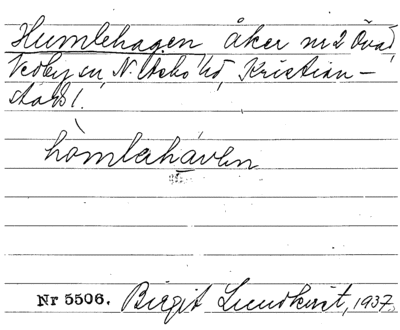 Humlehagen åker nr 2 Övad,
Vedby sn, N. Åsbo hd, Kristian-
stads l.
hòmlahávən
Nr 5506. Birgit Lundkvist, 1937.